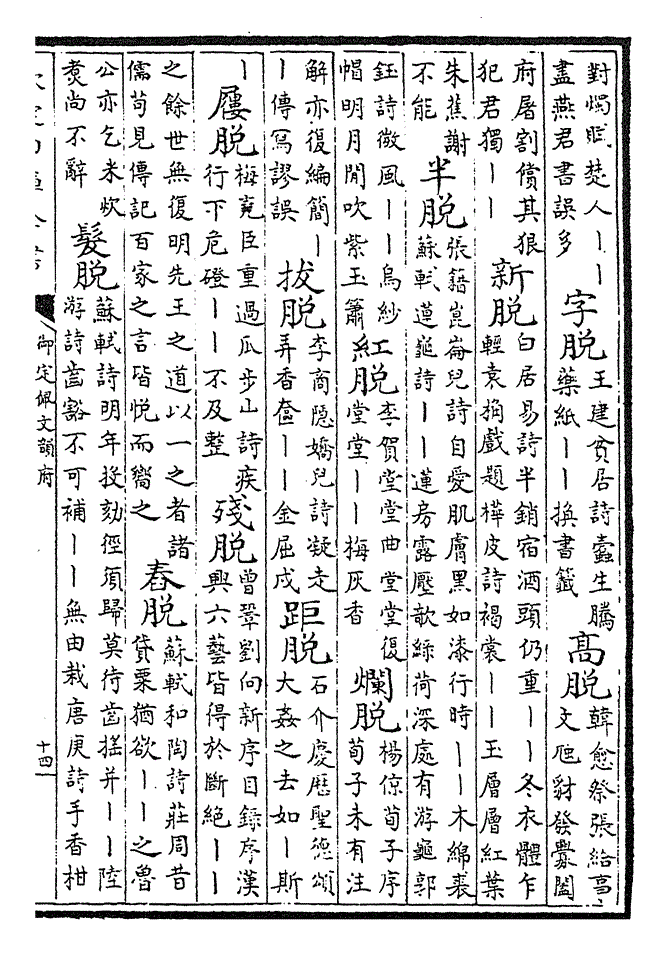 對燭賦楚人｜｜
盡燕君書誤多
字脱
王建貧居詩蠧生騰
藥紙｜｜換書籤
高脱
韓愈祭張給事
文虺豺發釁闔
府屠割償其狠
犯君獨｜｜
新脱
白居易詩半銷宿酒頭仍重｜｜冬衣體乍
輕袁桷戲題樺皮詩褐裳｜｜玉層層紅葉
朱蕉謝
不能
半脱
張籍崑崙兒詩自愛肌膚黑如漆行時｜｜木綿裘
蘇軾蓮龜詩｜｜蓮房露壓欹綠荷深處有游龜郭
鈺詩微風｜｜烏紗
帽明月閒吹紫玉簫
紅脱
李賀堂堂曲堂堂復
堂堂｜｜梅灰香
爛脱
楊倞荀子序
荀子未有注
解亦復編簡｜
｜傳冩謬誤
拔脱
李商隱嬌兒詩凝走
弄香奩｜｜金屈戌
距脱
石介慶厯聖德頌
大姦之去如｜斯
｜
屨脱
梅堯臣重過瓜步山詩疾
行下危磴｜｜不及整
殘脱
曾鞏劉向新序目録序漢
興六藝皆得於斷絶｜｜
之餘世無復明先王之道以一之者諸
儒苟見傳記百家之言皆悦而嚮之
舂脱
蘇軾和陶詩莊周昔
貸粟猶欲｜｜之魯
公亦乞米炊
煑尚不辭
髮脱
蘇軾詩明年投劾徑須歸莫待齒揺并｜｜陸
游詩齒豁不可補｜｜無由栽唐庚詩手香柑
欽定四庫全書
御定佩文韻府
十四